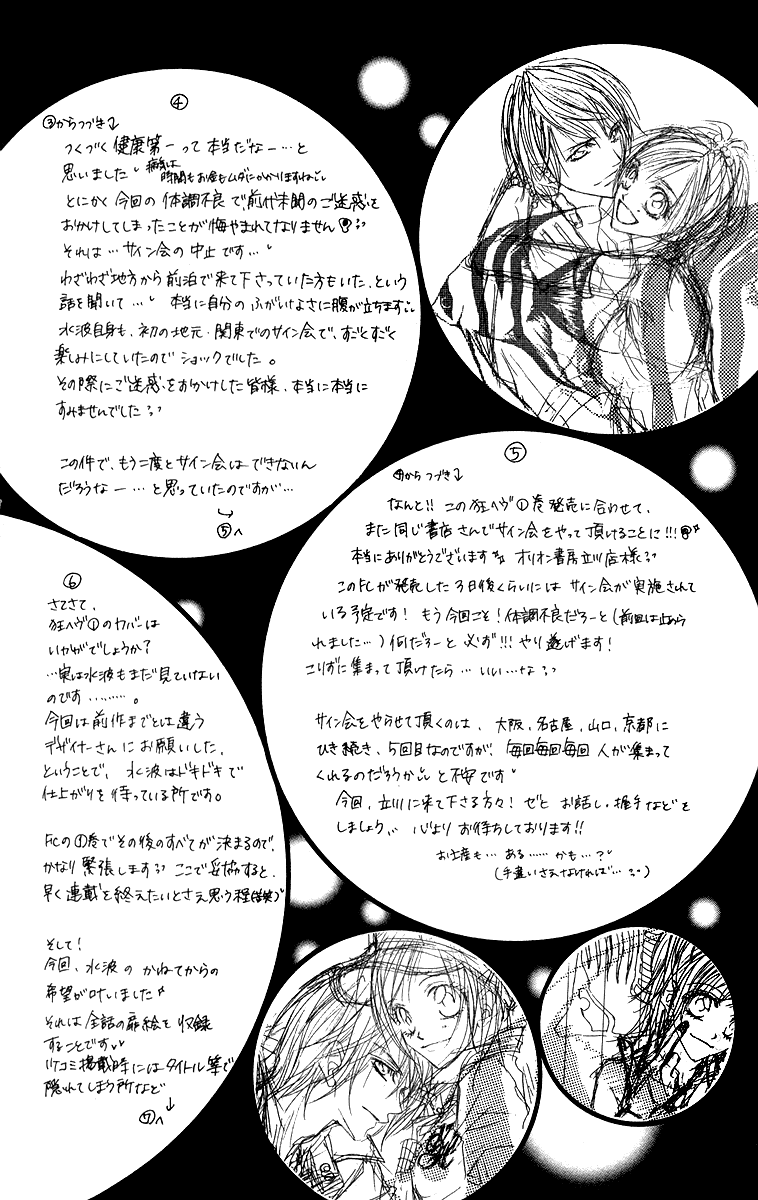 ④
③からつづき↓
つくづく健康第一って本当だなー…と
思いました
病気は
時間もお金もムダにかかりますね
とにかく今回の体調不良で、前代未聞のご迷惑を
おかけしてしまったことが悔やまれてなりません
それは…サイン会の中止です…
わざわざ地方から前泊で来て下さっていた方もいた、という
話を聞いて…本当に自分のふがいなさに腹が立ちます
水波自身も、初の地元・関東でのサイン会で、すごくすごく
楽しみにしていたのでショックでした。
その際にご迷惑をおかけした皆様、本当に本当に
すみませんでした
この件で、もう二度とサイン会はできないん
だろうなー…と思っていたのですが…
→
⑤へ
⑤
④からつづき↓
なんと!! この狂ヘヴ①巻発売に合わせて、
また同じ書店さんでサイン会をやって頂けることに!!!
本当にありがとうございます オリオン書房立川店様
このFCが発売した3日後くらいには サイン会が実施されて
いる予定です! もう今回こそ! 体調不良だろーと(前回は止めら
れました…)何だろーと 必ず!!! やり遂げます!
こりずに集まって頂けたら…いい…な
サイン会をやらせて頂くのは、大阪、名古屋、山口、京都に
ひき続き、5回目なのですが、毎回毎回毎回 人が集まって
くれるのだろうか と不安です
今回、立川に来て下さる方々! ぜひ お話し・握手などを
しましょう 心より お待ちしております!!
お土産も…ある……かも…?
(手違いさえなければ…)
⑥
さてさて、
狂ヘヴ①のカバーは
いかがでしょうか?
…実は水波もまだ見ていない
のです………。
今回は前作までとは違う
デザイナーさんにお願いした、
ということで、水波はドキドキで
仕上がりを待っている所です。
FCの①巻でその後のすべてが決まるので、
かなり緊張します ここで妥協すると、
早く連載を終えたいとさえ思う程(苦笑)
そして!
今回、水波の かねてからの
希望が叶いました
それは全話の扉絵を収録
することです
リケコミ掲載時にはタイトル等で
隠れてしまう所など
↓
⑦へ